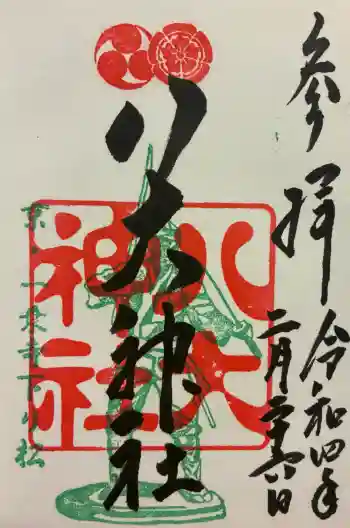 参拝
令和四年
二月二十六日
八大神社
八大
神社
京・一乗寺下り松